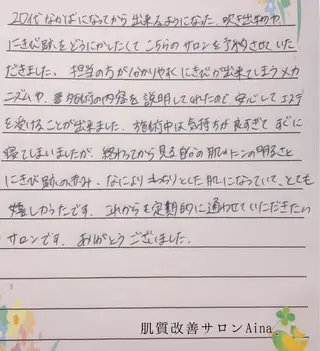 20代なかばになってから出来るようになった、吹き出物や
にきび跡をどうにかしたくてこちらのサロンを予約させていた
だきました。担当の方が分かりやすくにきびが出来てしまうメカ
ニズムや、施術の内容を説明してくれたので、安心してエステ
を受けることが出来ました。施術中は気持ちが良すぎてすぐに
寝てしまいましたが、終わってから見る自分の肌トーンの明るさと
にきび跡の赤み、なによりもっちりとした肌になっていて、とても
嬉しかったです。これからも定期的に通わせていただきたい
サロンです。ありがとうございました。
肌質改善サロンAina